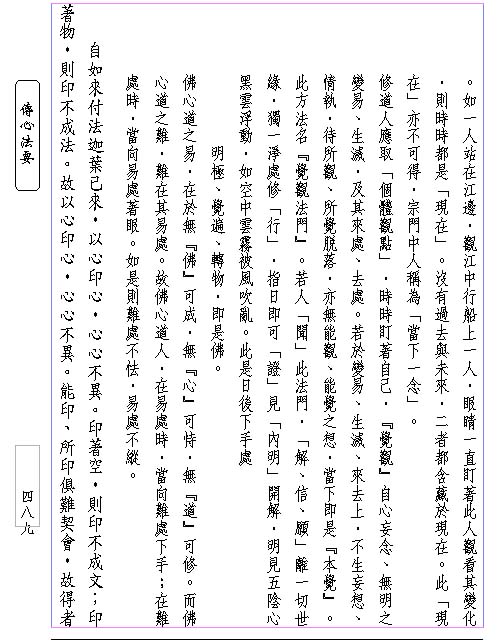 。如一人站在江邊，觀江中行船上一人，眼睛一直盯著此人觀看其變化
，則時時都是「現在」。沒有過去與未來，二者都含藏於現在。此「現
在」亦不可得，宗門中人稱為「當下一念」。
修道人應取「個體觀點」，時時盯著自己，『覺觀』自心妄念、無明之
變易、生滅，及其來處、去處。若於變易、生滅、來去上，不生妄想、
情執，待所觀、所覺脫落，亦無能觀、能覺之想，當下即是『本覺』。
此方法名『覺觀法門』。若人「聞」此法門，「解、信、願」離一切世
緣，獨一淨處修「行」，指日即可「證」見「內明」開解，明見五陰心
黑雲浮動，如空中雲霧被風吹亂。此是日後下手處
明極、覺遍、轉物，即是佛。
佛心道之易，在於無『佛』可成，無『心』可恃，無『道』可修。而佛
心道之難，難在其易處。故佛心道人，在易處時，當向難處下手；在難
處時，當向易處著眼。如是則難處不怯，易處不縱。
自如來付法迦葉已來，以心印心，心心不異。印著空，則印不成文；印
著物，則印不成法。故以心印心，心心不異。能印、所印俱難契會，故得者
傳心法要
四八九